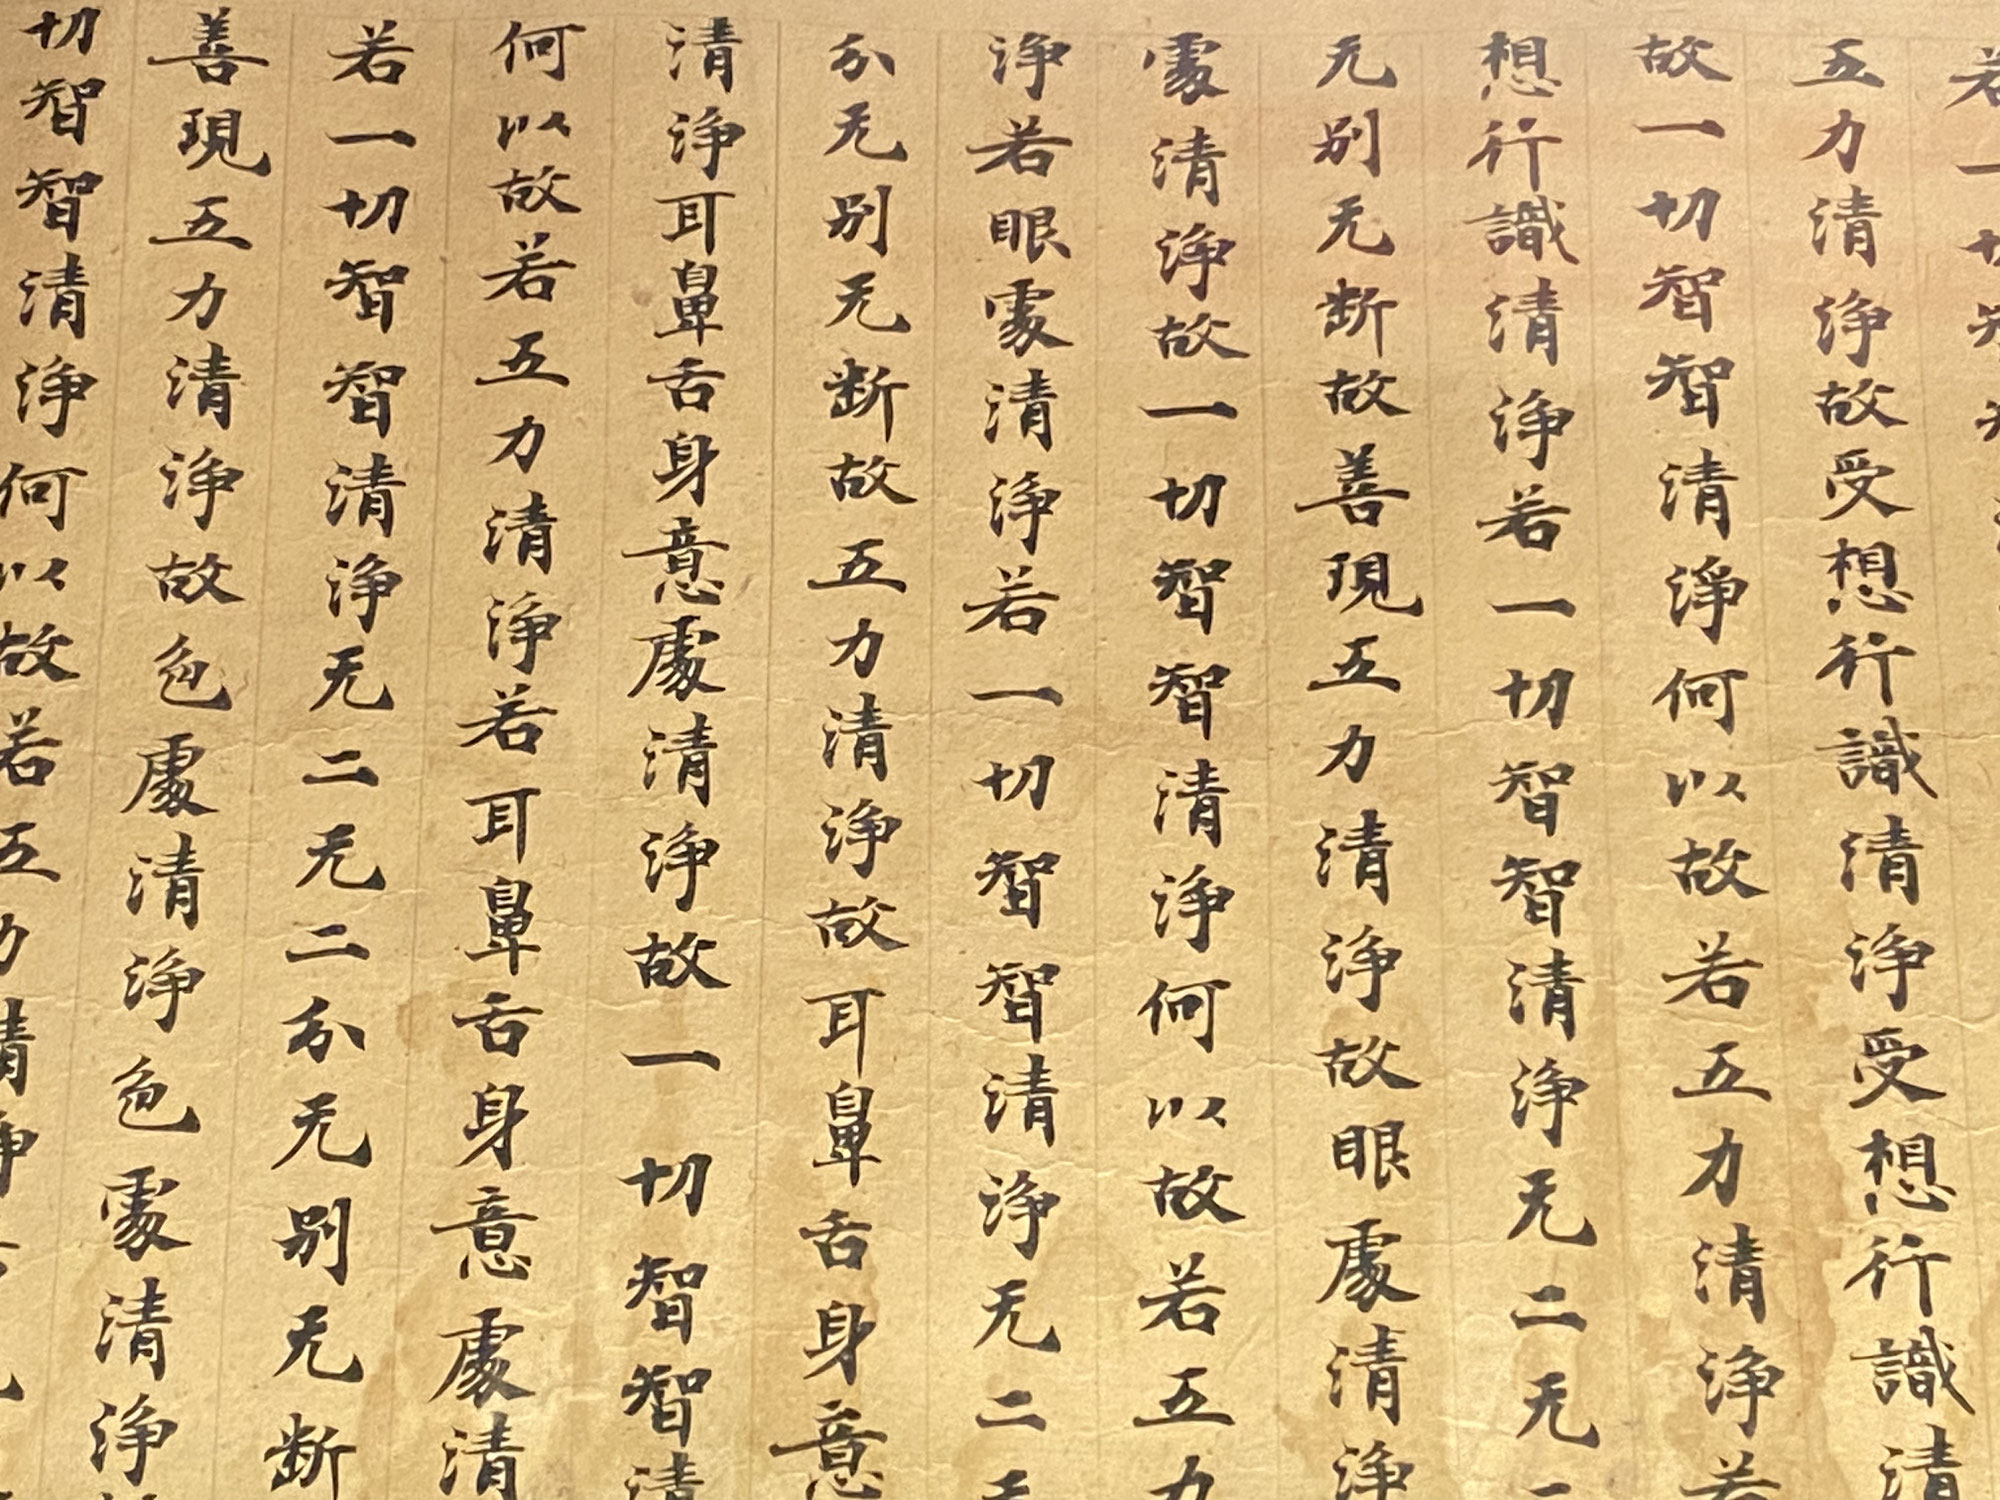 若一切智
五力清淨故受想行識清淨受想行識清
故一切智智清淨何以故若五力清淨若
想行識清淨若一切智智清淨无二无二
无別无断故善現五力清淨故眼處清淨
處清淨故一切智智清淨何以故若五力
淨若眼處清淨若一切智智清淨无二无
分无別无断故五力清淨故耳鼻舌身意
清淨耳鼻舌身意處清淨故一切智智清
何以故若五力清淨若耳鼻舌身意處清
若一切智智清淨无二无二分无別无断
善現五力清淨故色處清淨色處清淨
切智智清淨何以故若五力清淨